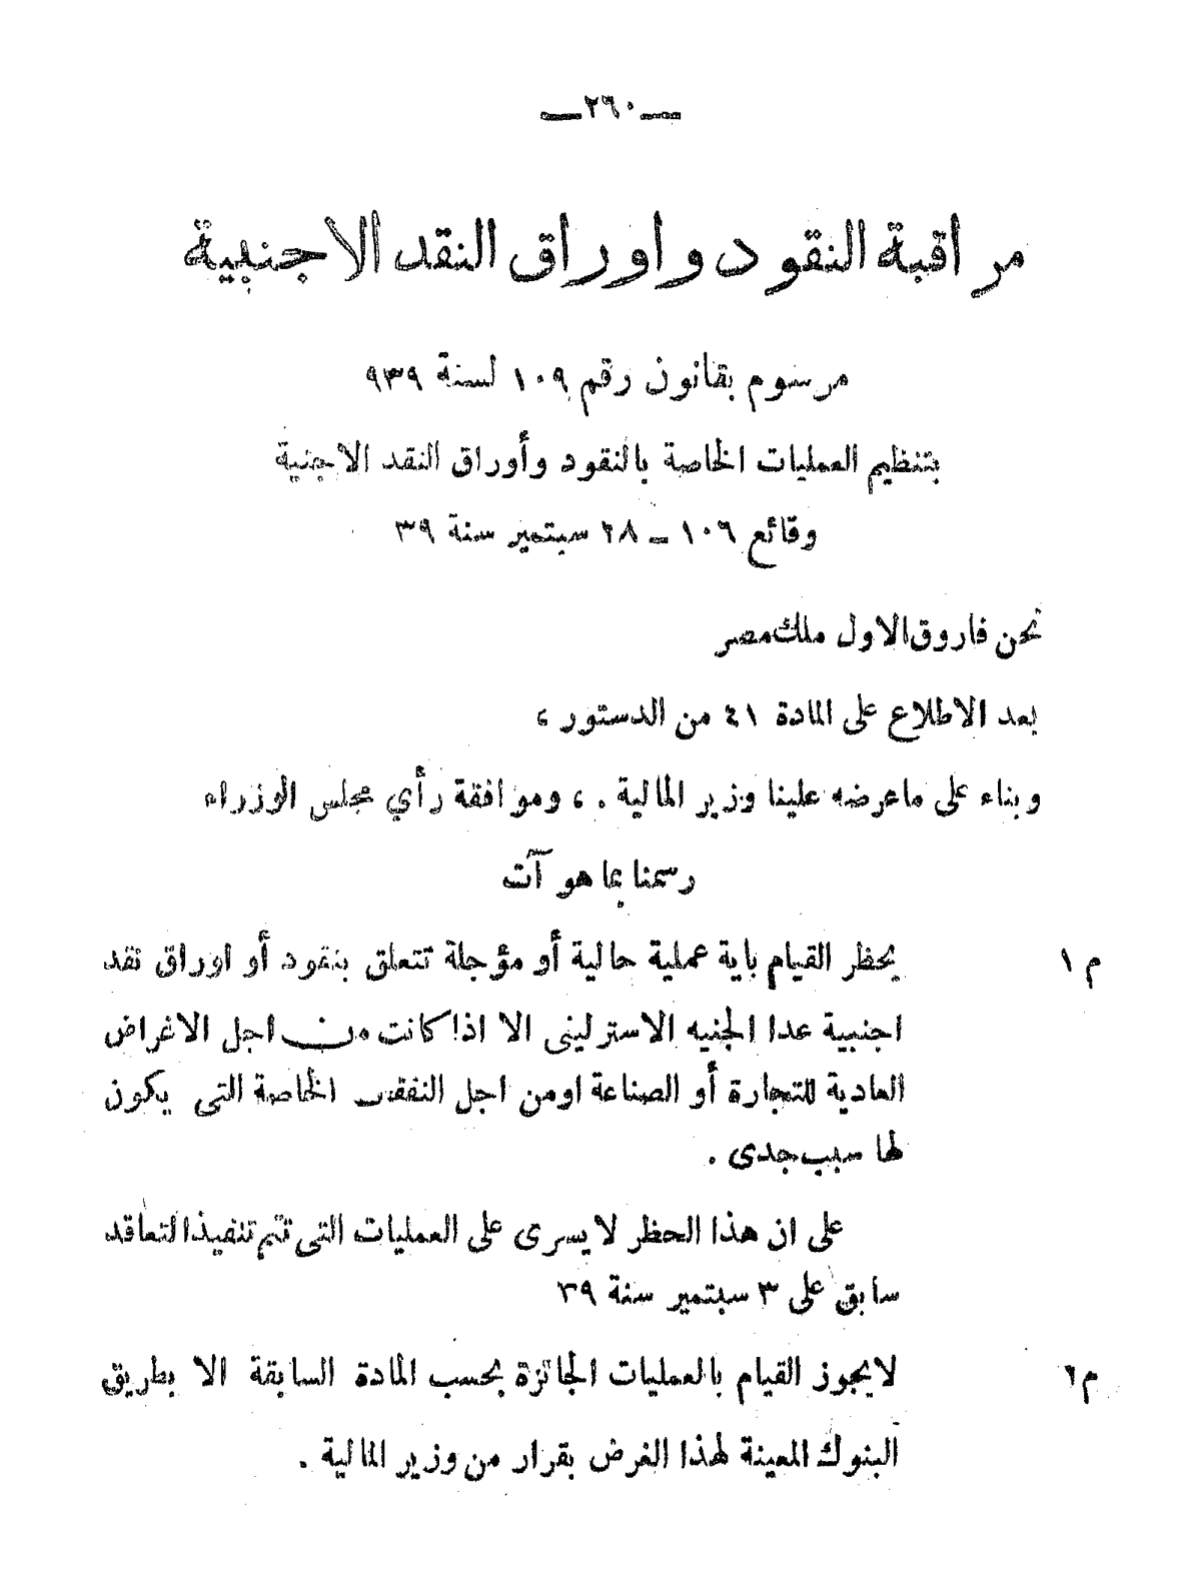 —٢٦٠—
مراقبة النقود واوراق النقد الاجنبية
مرسوم بقانون رقم ١٠٩ لسنة ٩٣٩
بتنظيم العمليات الخاصة بالنقود وأوراق النقد الاجنبية
وقائع ١٠٦ – ٢٨ سبتمبر سنة ٣٩
نحن فاروق الاول ملك مصر
بعد الاطلاع على المادة ٤١ من الدستور ،
وبناء على ماعرضه علينا وزير المالية . ، وموافقة رأي مجلس الوزراء
رسمنا بما هو آت
م ١ يحظر القيام باية عملية حالية أو مؤجلة تتعلق بنقود أو اوراق نقد
اجنبية عدا الجنيه الاسترلينى الا اذا كانت من اجل الاغراض
العادية للتجارة أو الصناعة اومن اجل النفقات الخاصة التى يكون
لها سبب جدى .
على ان هذا الحظر لا يسرى على العمليات التى تتم تنفيذا لتعاقد
سابق على ٣ سبتمبر سنة ٣٩
م ٢ لايجوز القيام بالعمليات الجائزة بحسب المادة السابقة الا بطريق
البنوك المعينة لهذا الغرض بقرار من وزير المالية .